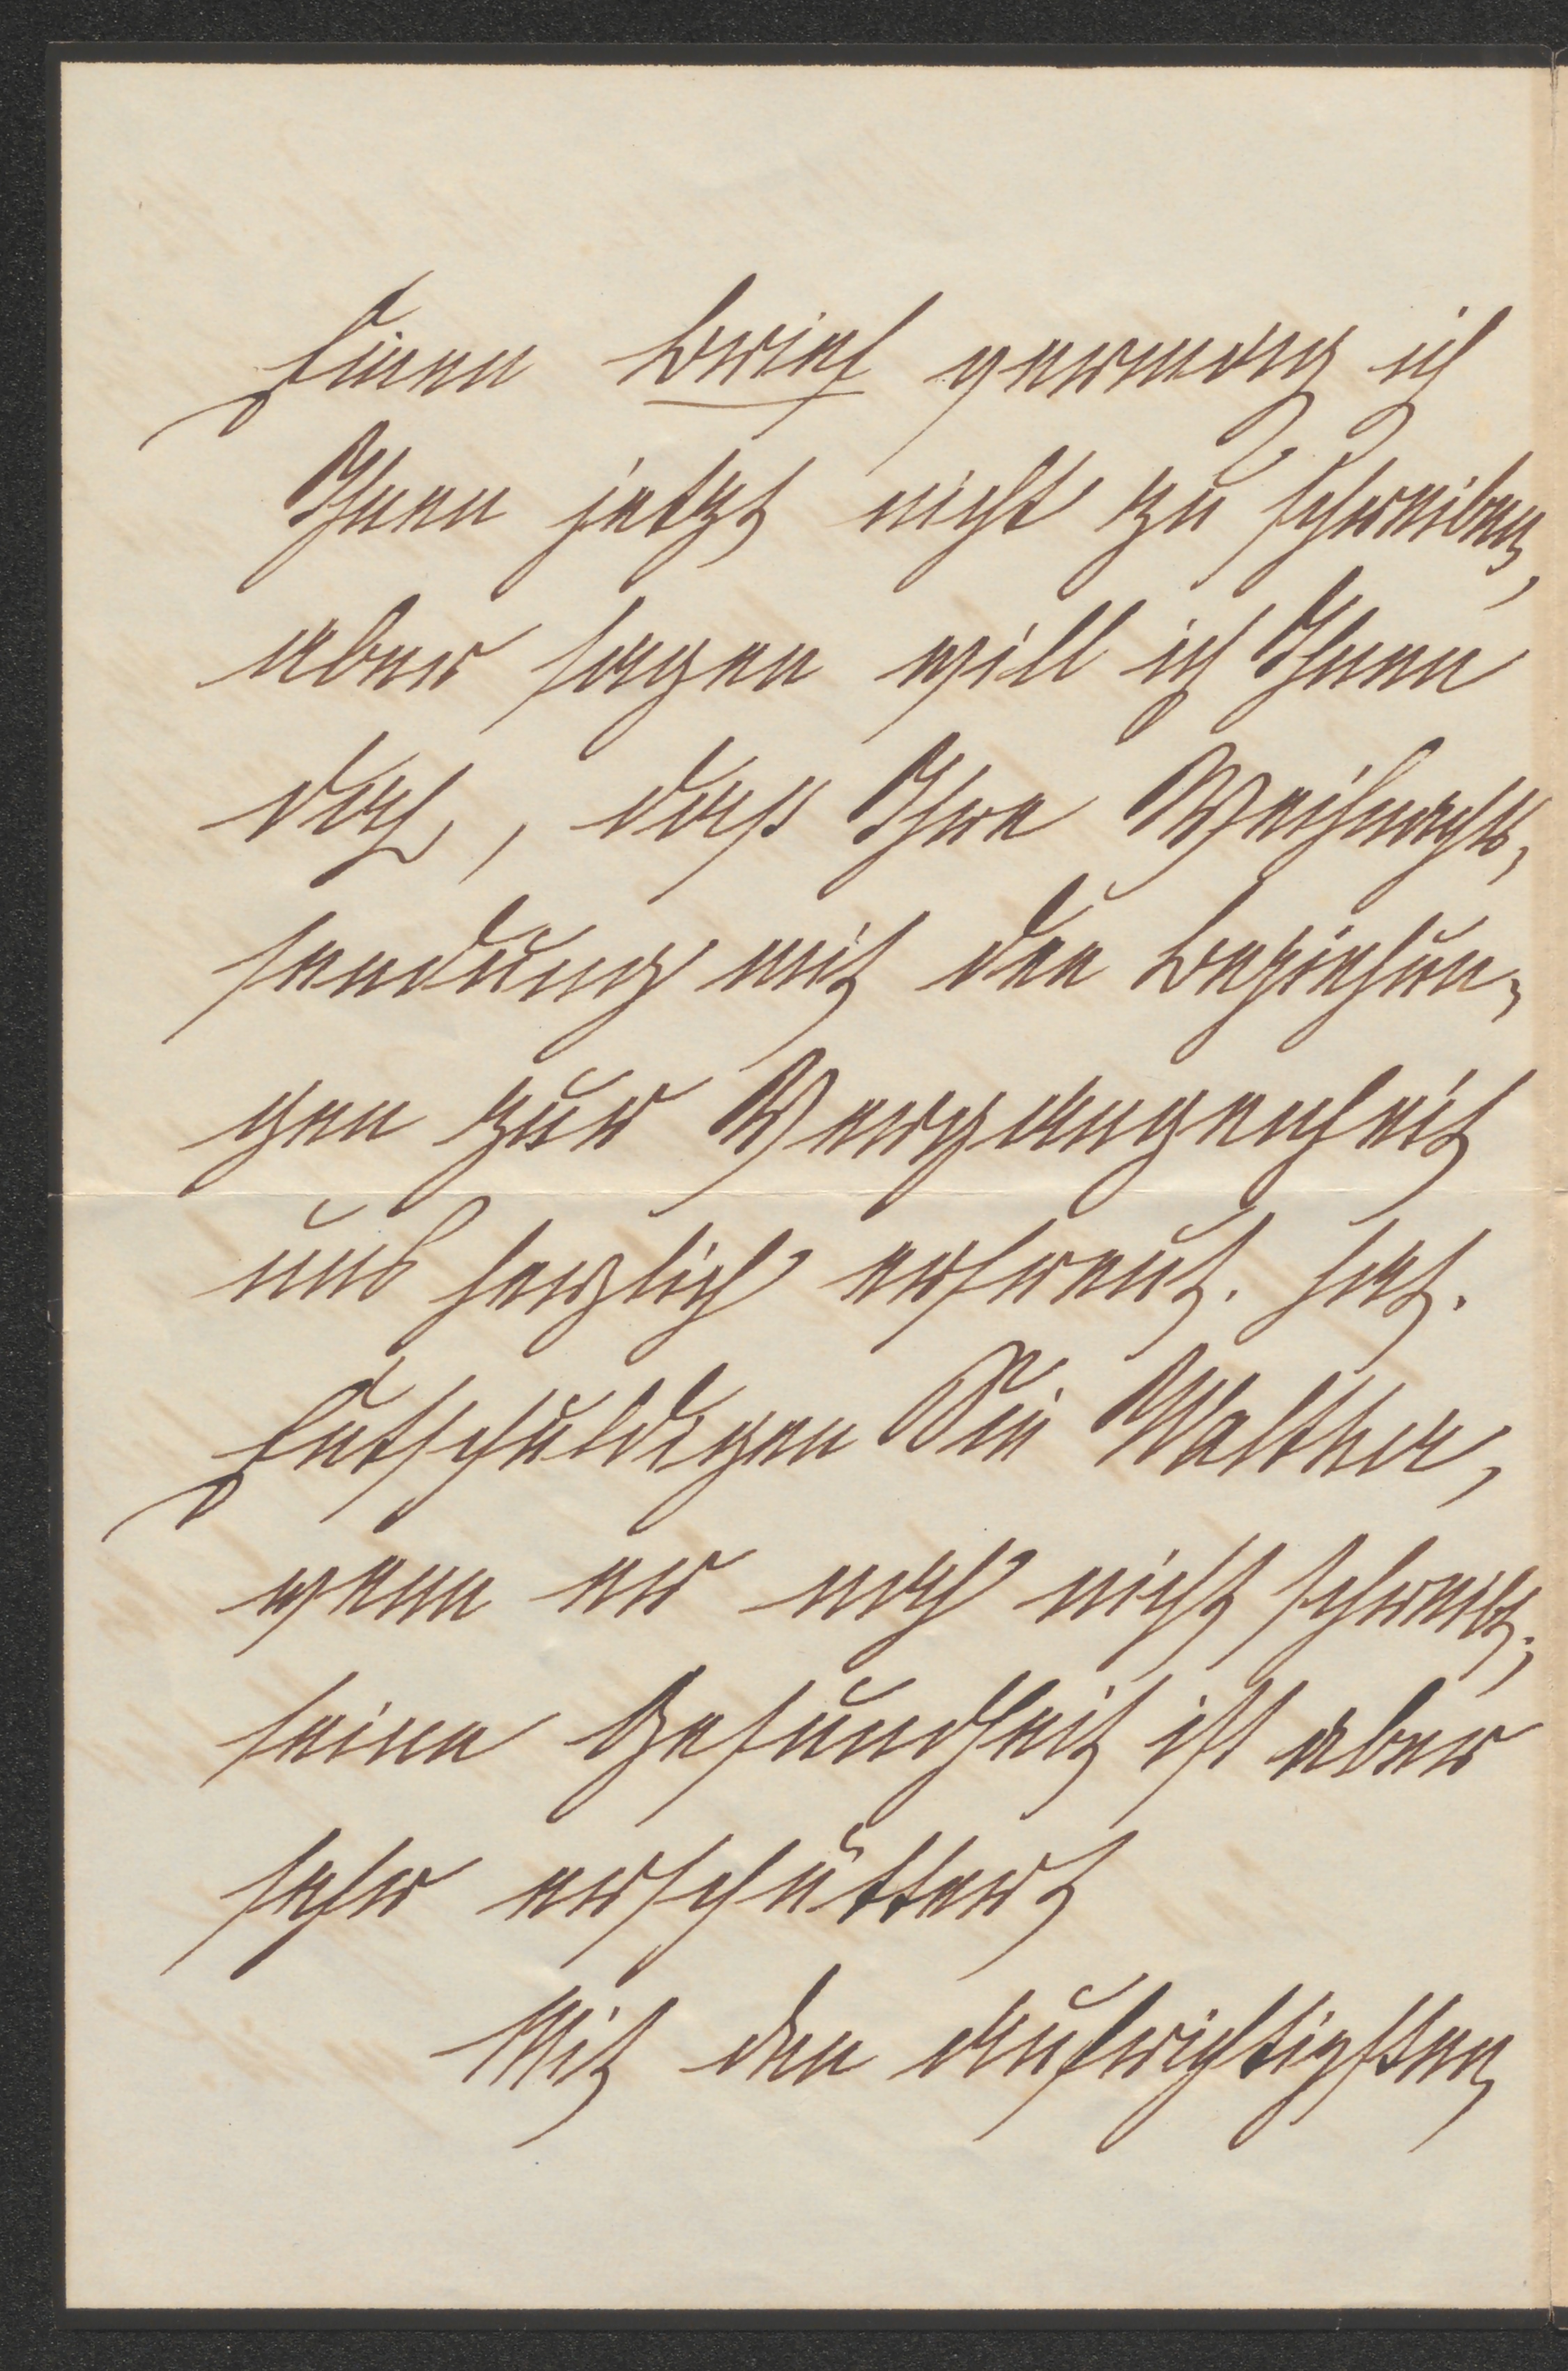 Einen Brief vermag ich
Ihnen jetzt nicht zu schreiben,
aber sagen will ich Ihnen
doch, daß Ihre Weihnachts-
sendung mit den Beziehun-
gen zur Vergangenheit
uns herzlich erfreut. hat.
Entschuldigen Sie Walther,
wenn er noch nicht schreibt;
seine Gesundheit ist aber
sehr erschüttert
Mit den aufrichtigsten